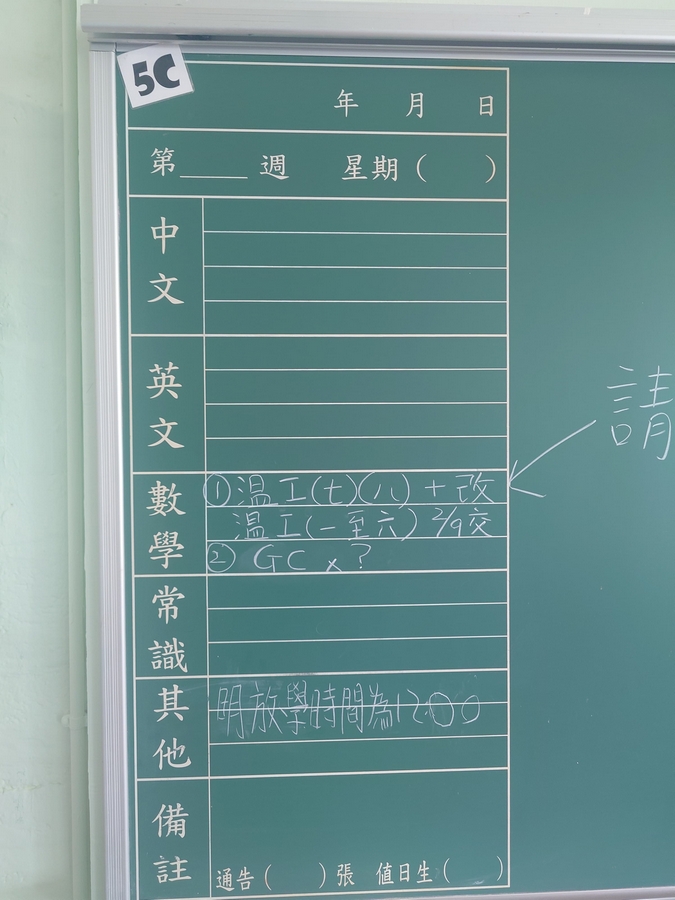 5C
年 月 日
第____週 星期( )
中文
英文
請
數學
①溫工(七)(八)+改
溫工(一至六) 2/9交
② GC x ?
常識
其他
明放學時間為12:00
備註
通告( )張 值日生( )